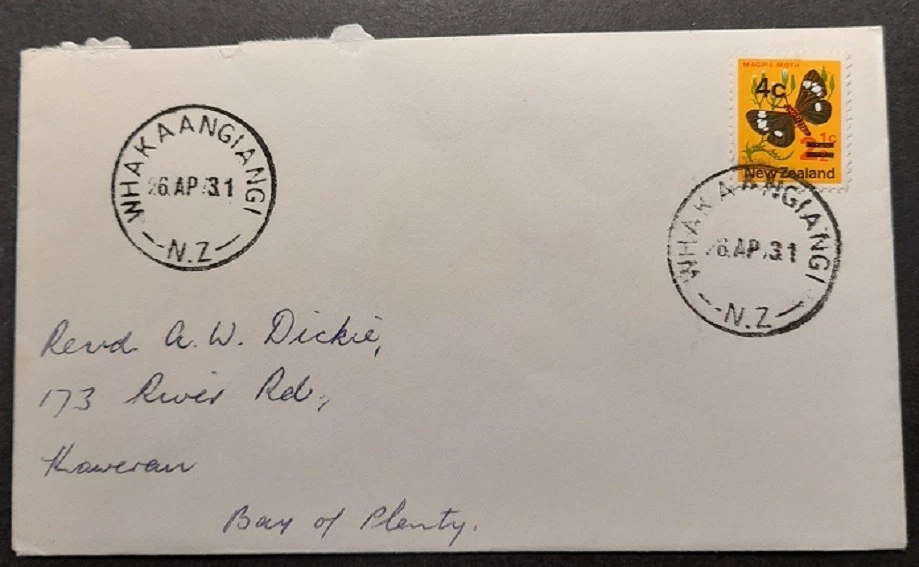 MAGPIE MOTH
4c
2½c
New Zealand
WHAKAANGIANGI
26.AP.31
N.Z
WHAKAANGIANGI
26.AP.31
N.Z
Revd. A. W. Dickie,
173 River Rd.,
Kawerau
Bay of Plenty.